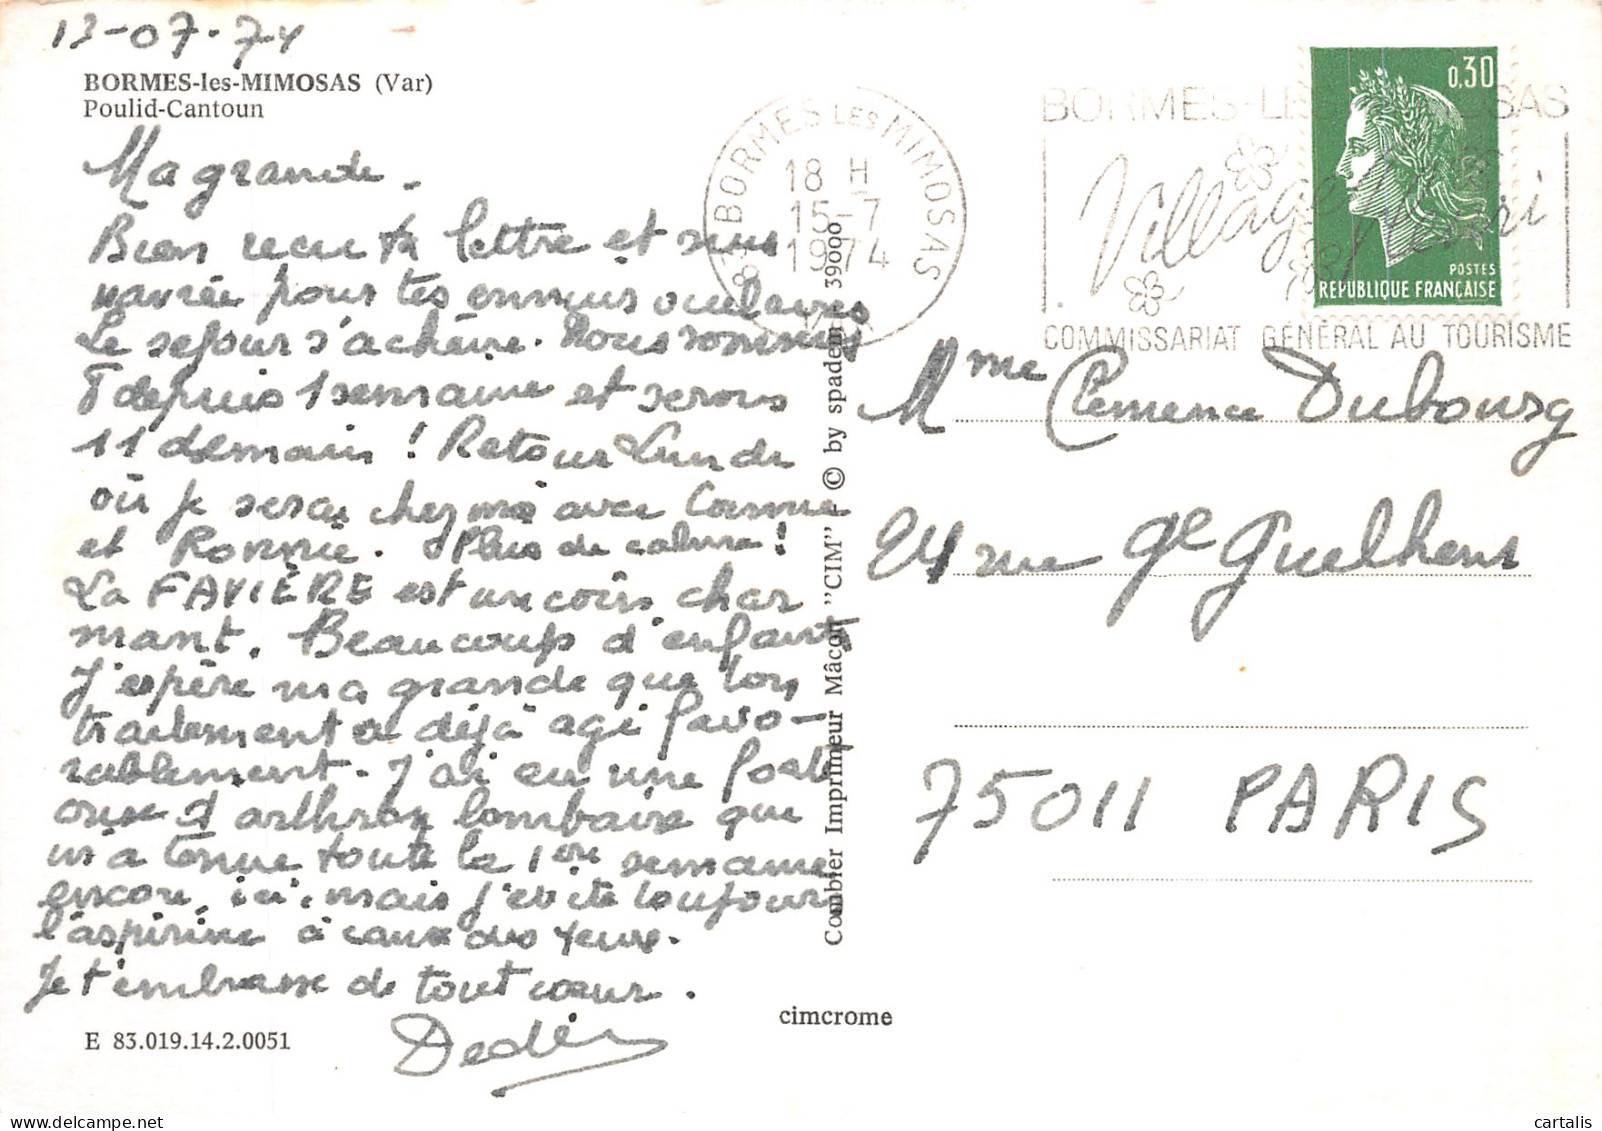 13-07-74
BORMES-les-MIMOSAS (Var)
Poulid-Cantoun
Ma grande.
Bien reçu ta lettre et suis
navrée pour tes ennuis oculaires
Le séjour s'achève. Nous sommes
8 depuis 1 semaine et serons
11 demain ! Retour Lundi
où je serai chez moi avec
et Ronnie. Plus de calme !
La FAVIÈRE est un coin char
mant. Beaucoup d'enfants
J'espère ma grande que ton
traitement a déjà agi favo-
rablement. J'ai eu une forte
crise d'arthrose lombaire qui
m'a tenue toute la 1ère semaine
encore, ici, mais j'évite toujours
l'aspirine à cause des yeux.
Je t'embrasse de tout cœur.
Dedée
E 83.019.14.2.0051
83 BORMES LES MIMOSAS
18 H
15-7
1974
VAR
BORMES-LES MIMOSAS
Village fleuri
COMMISSARIAT GÉNÉRAL AU TOURISME
0,30
POSTES
REPUBLIQUE FRANÇAISE
Combier Imprimeur Mâcon "CIM" - © by spadem 39000
Mme Clemence Dubourg
24 rue Gl Guilhem
75011 PARIS
cimcrome
cartalis